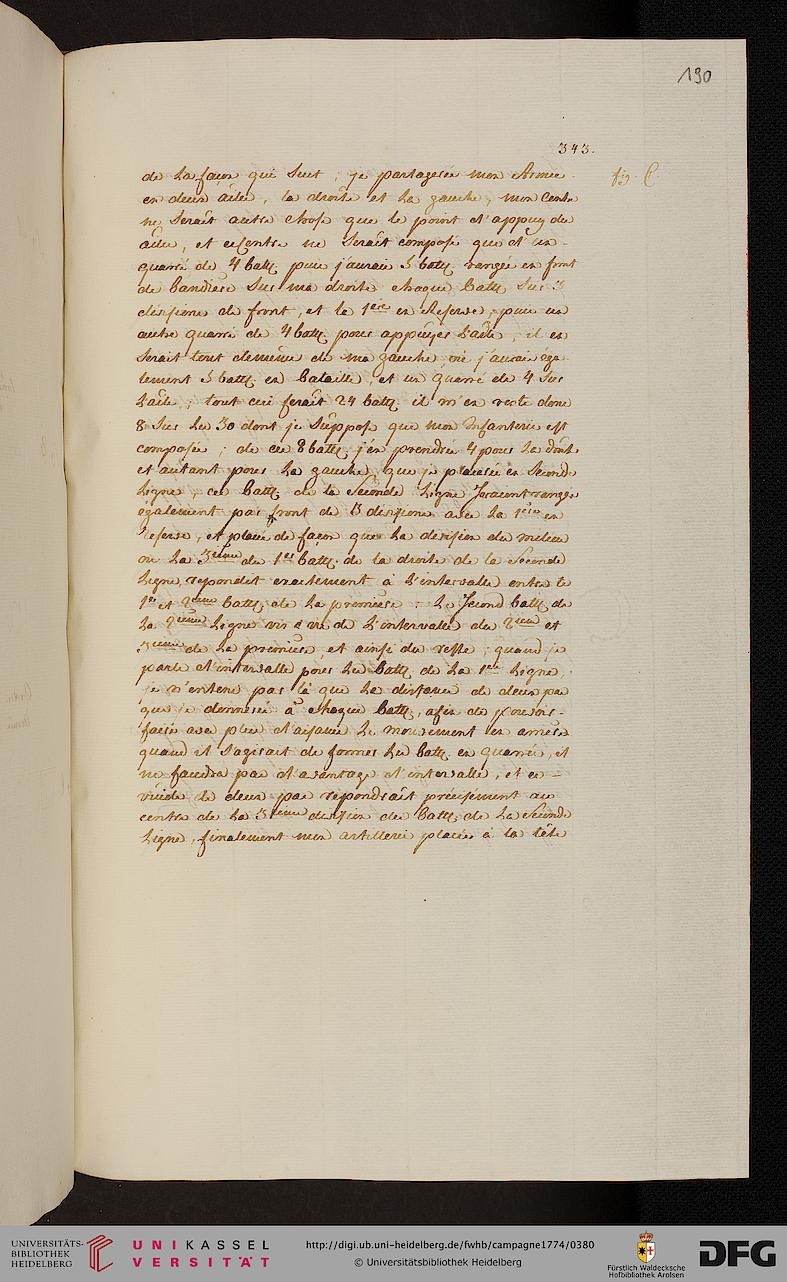 190
343.
de la façon qui suit ; je partagerai mon Armée fig. C
en deux aîles, la droite et la gauche, mon Centre
ne serait autre chose que le point d'appuy des
aîles, et ce Centre ne serait composé que d'un
quarré de 4 batt: puis j'aurais 5 batt: rangés en front
de bandiere sur ma droite chaque batt: sur 3
divisions de front, et le 1ere en reserve, puis un
autre quarré de 4 batt: pour appuyer l'aîle, il en
serait tout de même de ma gauche, où j'aurais éga
lement 5 batt: en bataille, et un quarré de 4 sur
l'aîle ; tout ceci ferait 24 batt: il m'en reste donc
8 sur les 30 dont je suppose que mon Infanterie est
composée ; de ces 8 batt: j'en prendrai 4 pour la droite
et autant pour la gauche, que je placerai en seconde
Ligne, ces batt: de la seconde Ligne seraient rangés
également par front de 3 divisions avec la 1ere en
reserve, et placés de façon que la division du milieu
ou la 3eme du 1er batt: de la droite de la seconde
Ligne, repondit exactement à l'intervalle entre le
1er et 2eme batt: de la premiere : le second batt: de
la 2eme Ligne vis à vis de l'intervalle du 2eme et
3eme de la premiere, et ainsi du reste ; quand je
parle d'intervalle pour les batt: de la 1ere Ligne,
je n'entens par là que la distance de deux pas
que je donnerai à chaque batt:, afin de pouvoir
faire avec plus d'aisance le mouvement en arriere
quand il s'agirait de former les batt: en quarrés, il
ne faudra pas d'avantage d'intervalle, et ce
vuide de deux pas repondrait précisément au
centre de la 3eme division des batt: de la seconde
Ligne, finalement mon artillerie placée à la tête
UNIVERSITÄTS-
BIBLIOTHEK
HEIDELBERG
UNIKASSEL
VERSITÄT
http://digi.ub.uni-heidelberg.de/fwhb/campagne1774/0380
© Universitätsbibliothek Heidelberg
Fürstlich Waldecksche
Hofbibliothek Arolsen
DFG